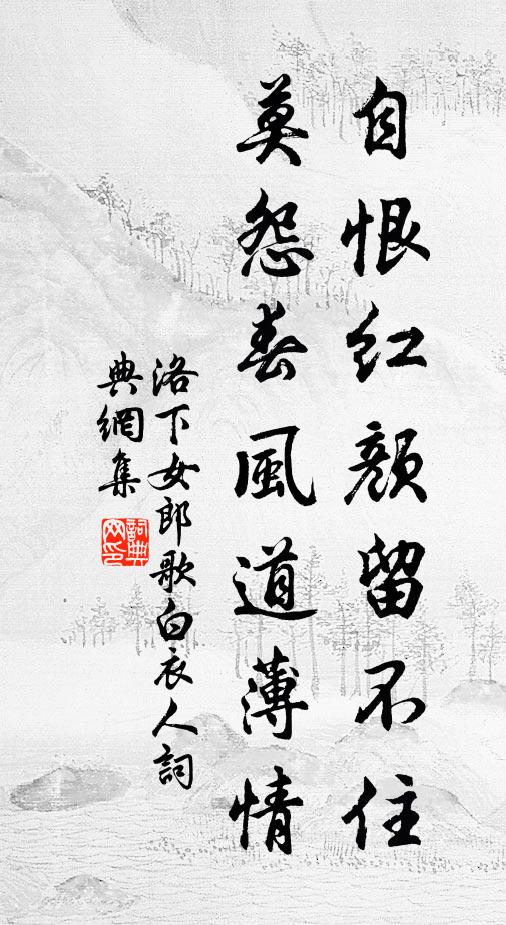 自恨红颜留不住
莫怨春風道薄情
洛下女郎歌白衣人詞
典網集
詞典
网印